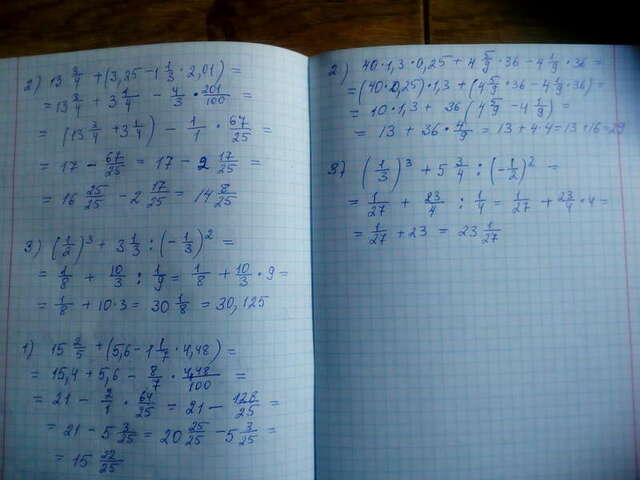 2) 13 3/4 + (3,25 - 1 1/3 · 2,01) =
= 13 3/4 + 3 1/4 - 4/3 · 201/100 =
= (13 3/4 + 3 1/4) - 1/1 · 67/25 =
= 17 - 67/25 = 17 - 2 17/25 =
= 16 25/25 - 2 17/25 = 14 8/25
3) (1/2)³ + 3 1/3 : (-1/3)² =
= 1/8 + 10/3 : 1/9 = 1/8 + 10/3 · 9 =
= 1/8 + 10·3 = 30 1/8 = 30,125
1) 15 2/5 + (5,6 - 1 1/7 · 4,48) =
= 15,4 + 5,6 - 8/7 · 4,48/100 =
= 21 - 2/1 · 64/25 = 21 - 128/25 =
= 21 - 5 3/25 = 20 25/25 - 5 3/25 =
= 15 22/25
2) 40·1,3·0,25 + 4 5/9 · 36 - 4 1/9 · 36 =
= (40·0,25)·1,3 + (4 5/9 · 36 - 4 1/9 · 36) =
= 10·1,3 + 36 (4 5/9 - 4 1/9) =
= 13 + 36 · 4/9 = 13 + 4·4 = 13 + 16 = 29
3) (1/3)³ + 5 3/4 : (-1/2)² =
= 1/27 + 23/4 : 1/4 = 1/27 + 23/4 · 4 =
= 1/27 + 23 = 23 1/27